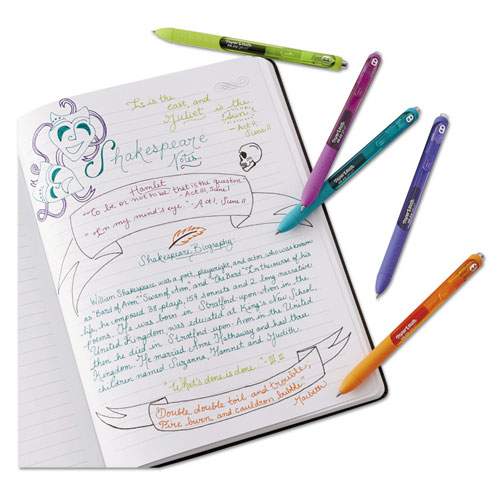 It is the
east, and
Juliet is the
Sun.
- Act 2,
Scene II
Shakespeare
Notes
Hamlet
"To be or not to be that is the question."
- Act III, Scene I
"In my mind's eye." - Act 1, Scene II
Shakespeare Biography
William Shakespeare was a poet, playwright, and actor, who was known
as "Bard of Avon," "Swan of Avon," and "the Bard." In the course of his
life, he composed 38 plays, 154 sonnets and 2 long narrative
poems. He was born in Stratford-upon-Avon in the
United Kingdom, was educated at King's New School,
then he died in Stratford-upon-Avon in the United
Kingdom. He married Anne Hathaway and had three
children named Suzanna, Hamnet and Judith.
"What's done is done." - III. II
"Double, double toil and trouble;
Fire burn, and cauldron bubble."
Macbeth
Paper Mate
Paper Mate
Paper Mate
Paper Mate
Paper Mate